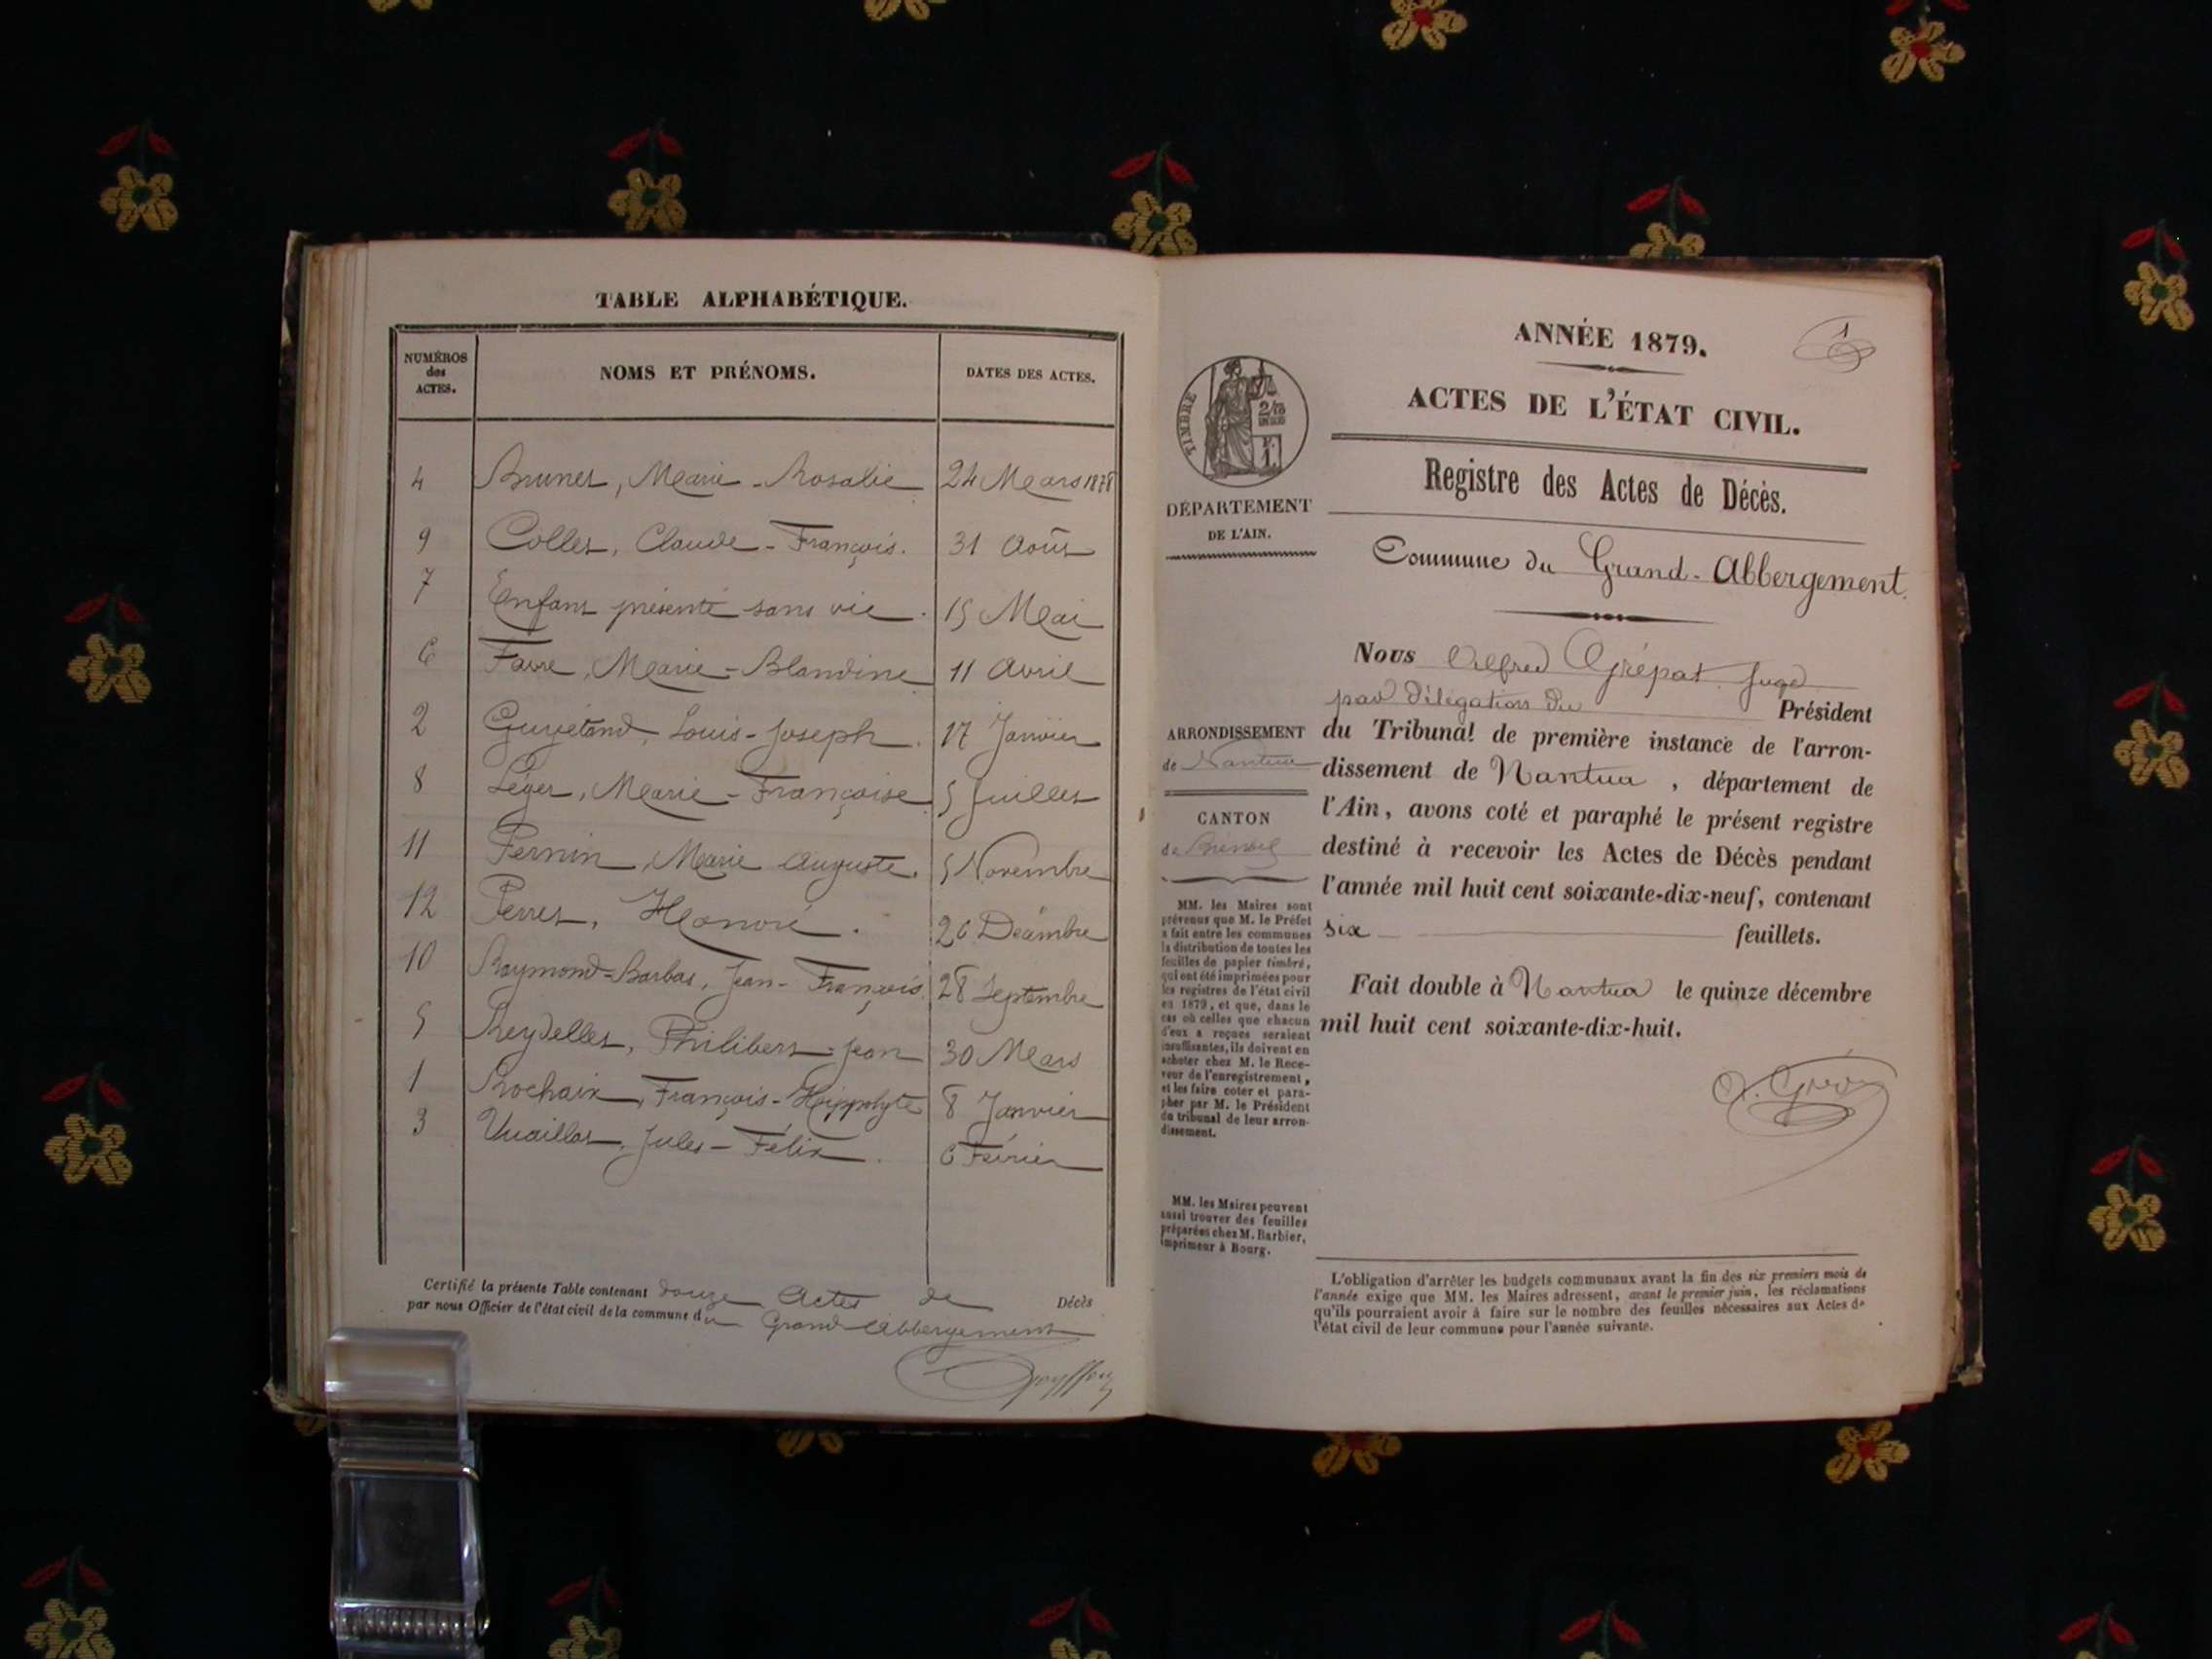 TABLE ALPHABÉTIQUE.
NUMÉROS
des
ACTES.
NOMS ET PRÉNOMS.
DATES DES ACTES.
4 Brunet, Marie-Rosalie 24 Mars 1878
9 Collet, Claude-François. 31 Août
7 Enfant présenté sans vie. 15 Mai
6 Favre, Marie-Blandine 11 Avril
2 Guyétand, Louis-Joseph. 17 Janvier
8 Léger, Marie-Françoise 5 Juillet
11 Pernin, Marie Auguste. 5 Novembre
12 Perret, Honoré. 26 Décembre
10 Raymond-Barbas, Jean-François 28 Septembre
5 Reydellet, Philibert-Jean 30 Mars
1 Rochaix, François-Hippolyte 8 Janvier
3 Vuaillat, Jules-Félix. 6 Février
Certifié la présente Table contenant douze Actes de Décès
par nous Officier de l'état civil de la commune du Grand Abbergement
1
ANNÉE 1879.
ACTES DE L'ÉTAT CIVIL.
Registre des Actes de Décès.
Commune du Grand-Abbergement.
TIMBRE
DÉPARTEMENT
DE L'AIN.
ARRONDISSEMENT
de Nantua
CANTON
de Brénod
MM. les Maires sont
prévenus que M. le Préfet
a fait entre les communes
la distribution de toutes les
feuilles de papier timbré,
qui ont été imprimées pour
les registres de l'état civil
en 1879, et que, dans le
cas où celles que chacun
d'eux a reçues seraient
insuffisantes, ils doivent en
acheter chez M. le Rece-
veur de l'enregistrement,
et les faire coter et para-
pher par M. le Président
du tribunal de leur arron-
dissement.
MM. les Maires peuvent
aussi trouver des feuilles
préparées chez M. Barbier,
imprimeur à Bourg.
Nous Alfred Grépat Juge
par délégation du Président
du Tribunal de première instance de l'arron-
dissement de Nantua, département de
l'Ain, avons coté et paraphé le présent registre
destiné à recevoir les Actes de Décès pendant
l'année mil huit cent soixante-dix-neuf, contenant
six feuillets.
Fait double à Nantua le quinze décembre
mil huit cent soixante-dix-huit.
L'obligation d'arrêter les budgets communaux avant la fin des six premiers mois de
l'année exige que MM. les Maires adressent, avant le premier juin, les réclamations
qu'ils pourraient avoir à faire sur le nombre des feuilles nécessaires aux Actes de
l'état civil de leur commune pour l'année suivante.